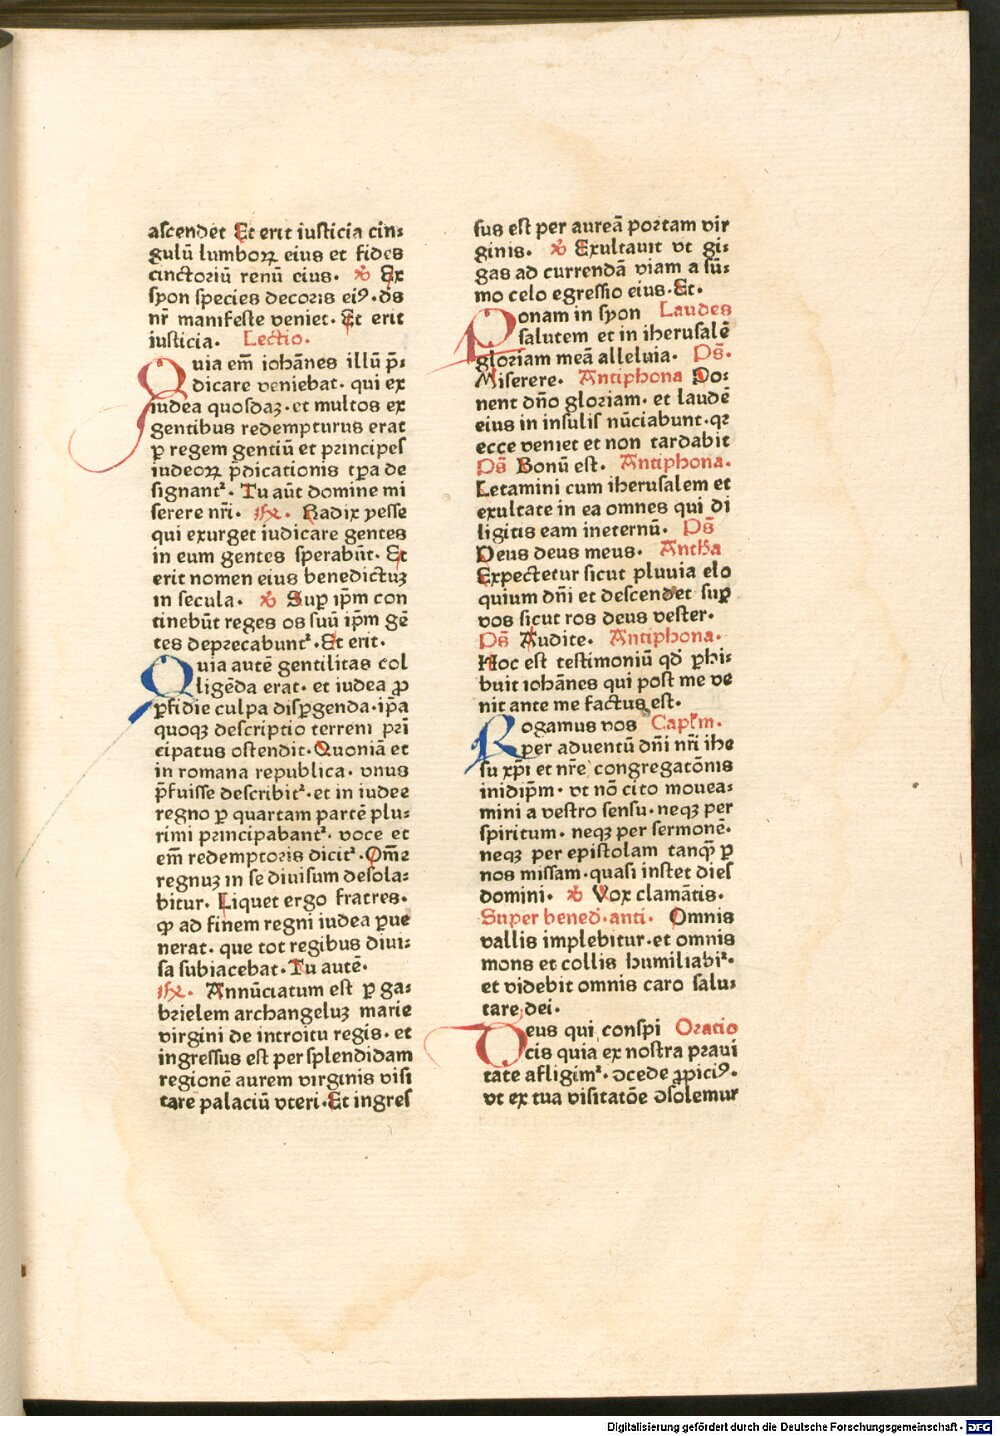 ascendet Et erit iusticia cin⸗
gulū lumboꝝ eius et fides
cinctoriū renū eius. ℣ Ex
syon species decoris eiꝰ. dꝰs
nr̄ manifeste veniet. Et erit
iusticia. Lectio.
Quia em̄ iohānes illū p̄⸗
dicare veniebat. qui ex
iudea quosdaꝫ. et multos ex
gentibus redempturus erat
ꝑ regem gentiū et principes
iudeoꝝ p̄dicationis tp̄a de
signantᷣ. Tu aūt domine mi
serere nr̄i. ℟. Radix yesse
qui exurget iudicare gentes
in eum gentes sperabūt. Et
erit nomen eius benedictuꝫ
in secula. ℣ Suꝑ ip̄m con
tinebūt reges os suū ip̄m gē
tes deprecabuntᷣ. Et erit.
Quia autē gentilitas col
ligēda erat. et iudea ꝓ
ꝑfidie culpa disꝑgenda. ip̄a
quoqꝫ descriptio terreni pri
cipatus ostendit. Quoniā et
in romana republica. vnus
p̄fuisse describitᷣ. et in iudee
regno ꝑ quartam partē plu⸗
rimi principabantᷣ. voce et
em̄ redemptoris dicitᷣ. Om̄e
regnuꝫ in se diuisum desola⸗
bitur. Liquet ergo fratres.
ꝙ ad finem regni iudea ꝑue
nerat. que tot regibus diui⸗
sa subiacebat. Tu autē.
℟. Annūciatum est ꝑ ga⸗
brielem archangeluꝫ marie
virgini de introitu regis. et
ingressus est per splendidam
regionē aurem virginis visi
tare palaciū vteri. Et ingres
sus est per aureā portam vir
ginis. ℣ Exultauit vt gi⸗
gas ad currendā viam a sū⸗
mo celo egressio eius. Et.
Ponam in syon Laudes
salutem et in iherusalē
gloriam meā alleluia. Ps̄.
Miserere. Antiphona Do⸗
nent dn̄o gloriam. et laudē
eius in insulis nūciabunt. qꝛ
ecce veniet et non tardabit
Ps̄ Bonū est. Antiphona.
Letamini cum iherusalem et
exultate in ea omnes qui di
ligitis eam ineternū. Ps̄
Deus deus meus. Antħa
Expectetur sicut pluuia elo
quium dn̄i et descendet suꝑ
vos sicut ros deus vester.
Ps̄ Audite. Antiphona.
Hoc est testimoniū qd̄ ꝑhi⸗
buit iohānes qui post me ve
nit ante me factus est.
Rogamus vos Capł'm.
per aduentū dn̄i nr̄i ihe
su xp̄i et nr̄e congregatōnis
inidip̄m. vt nō cito mouea⸗
mini a vestro sensu. neqꝫ per
spiritum. neqꝫ per sermonē.
neqꝫ per epistolam tanqꝫ̄ ꝑ
nos missam. quasi instet dies
domini. ℣ Vox clamātis.
Super bened. anti. Omnis
vallis implebitur. et omnis
mons et collis humiliabiᷣ.
et videbit omnis caro salu⸗
tare dei.
Deus qui conspi Oratio
cis quia ex nostra praui
tate afligimᷣ. ↄcede ꝓpiciꝰ.
vt ex tua visitatōe ↄsolemur
Digitalisierung gefördert durch die Deutsche Forschungsgemeinschaft - DFG